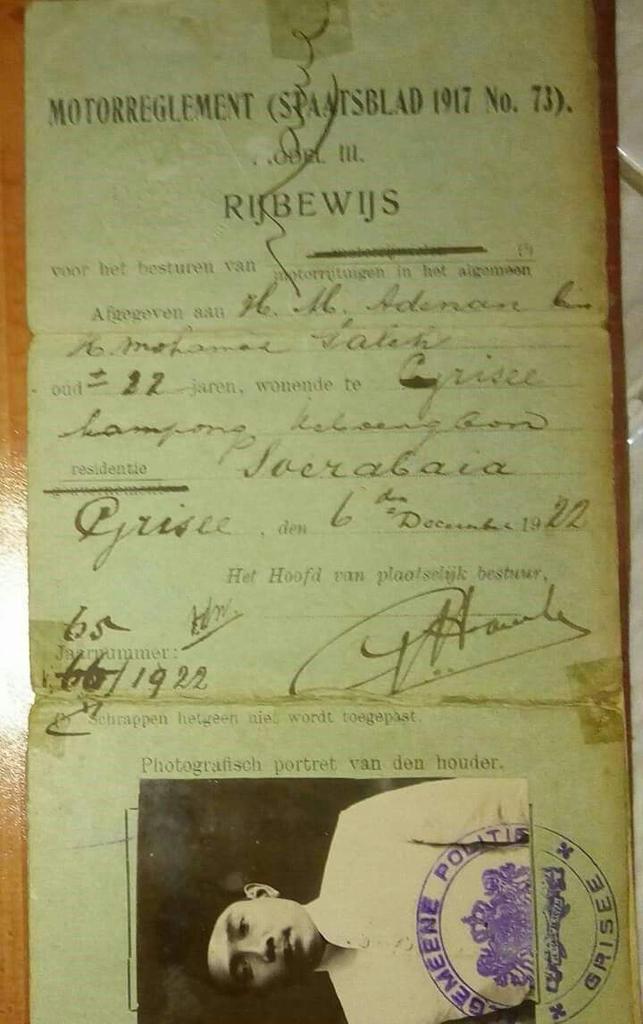 MOTORREGLEMENT (STAATSBLAD 1917 No. 73).
MODEL III.
RIJBEWIJS
voor het besturen van motorrijtuigen in het algemeen (1)
Afgegeven aan H. M. Adenan bin
H. Mohamad Saleh
oud ± 22 jaren, wonende te Grisee
kampong
residentie Soerabaia
Grisee, den 6 den December 1922
Het Hoofd van plaatselijk bestuur,
65
Jaarnummer:
66/1922
(1) Schrappen hetgeen niet wordt toegepast.
Photografisch portret van den houder.
ALGEMEENE POLITIE
GRISEE